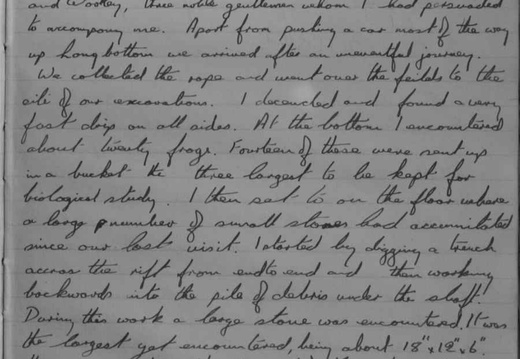 and Wookey, three noble gentlemen whom I had persuaded
to accompany me. Apart from pushing a car most of the way
up Longbottom we arrived after an uneventful journey.
We collected the rope and went over the feilds to the
site of our excavations. I decended and found a very
fast drip on all sides. At the bottom I encountered
about twenty frogs. Fourteen of these were sent up
in a bucket the three largest to be kept for
biological study. I then set to on the floor where
a large number of small stones had accumilated
since our last visit. I started by digging a trench
accross the rift from end to end and then working
backwards into the pile of debris under the shaft.
During this work a large stone was encountered. It was
the largest yet encountered, being about 18" x 12" x 6"